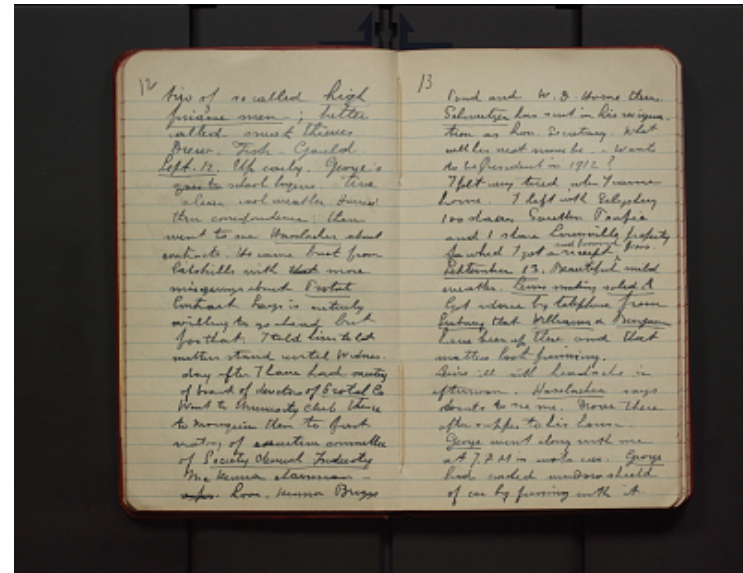 12
two of so called high
finance men; better
called sneak thieves
Dresser. Fish. Gould
Sept. 12. Up early. George's
goes to school begins. fine
clear cool weather. Hurried
thru correspondence: then
went to see Hasslacher about
contracts. He came back from
Catskills with that more
misgivings about Protal
Contract. Says is entirely
willing to go ahead but
for that. I told him to let
matters stand until Wednes.
day after I have had meeting
of board of directors of Protal Co
Went to University Club thence
to then to first
meeting of executive committee
of Society Chemical Industry
Mc Kenna chairman -
Love. Kenna Briggs
13
Pond and W. D. Horne there.
Schweitzer has sent in his resigna-
tion as hon. Secretary. What
will his next move be - Wants
to be President in 1912?
I felt very tired when I came
home. I left with
100 shares Pacific
and 1 share Louisville property
for which I got a receipt from
September 13. Beautiful mild
weather. Lewis making solid A
Got advice by telephone from
that Williams &
have been up there and that
matters look promising.
Lewis ill with headache in
afternoon. Hasslacher says
wants to see me. Drove there
after supper to his house.
George went along with me
at 7. P M in car. George
had cracked window shield
of car by with it